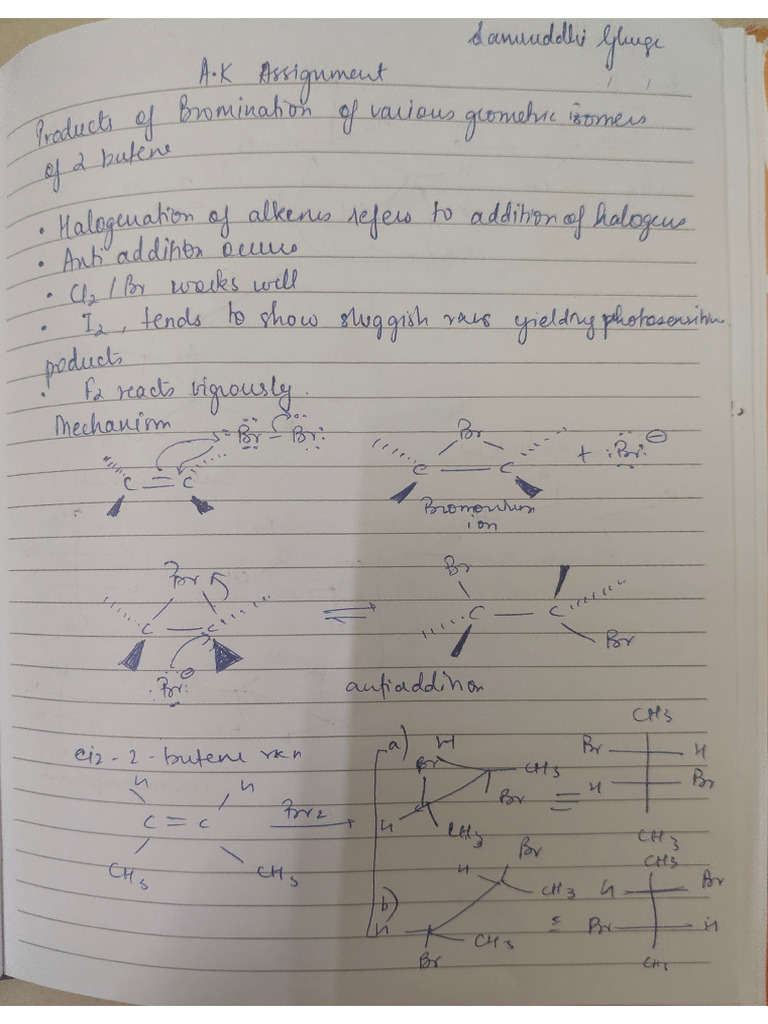 Samruddhi Ghuge
A.K Assignment
Products of Bromination of various geometric isomers
of 2 butene
• Halogenation of alkenes refers to addition of halogens
• Anti addition occurs
• Cl2 / Br works well
• I2, tends to show sluggish rxns yielding photosensitive
products
• F2 reacts vigrously.
Mechanism
:Br - Br:
C = C
Br
C — C + :Br: ⊖
Bromonium
ion
Br
C — C
:Br: ⊖
⇌
Br
C — C
Br
antiaddition
cis-2-butene rxn
H H
C = C
CH3 CH3
Br2
a) H
Br CH3
Br
H CH3
≡
CH3
Br H
H Br
CH3
b) Br
H CH3
H CH3
Br
≡
CH3
H Br
Br H
CH3